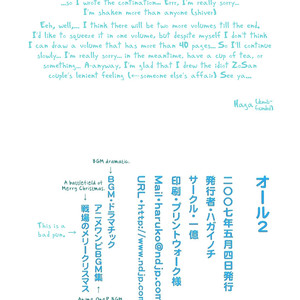 ...so I wrote the contination... Errr, I'm really sorry...
I'm shaken more than anyone (shiver)
Eeh, well,... I think there will be two more volumes till the end.
I'd like to squeeze it in one volume, but despite myself I don't think
I can draw a volume that has more than 40 pages... So I'll continue
slowly... I'm really sorry... in the meantime, have a cup of tea, or
something... A-anyway, I'm glad that I drew the idiot ZoSan
couple's lenient feeling (←someone else's affair) See ya...
Haga
オール2
二〇〇七年五月四日発行
発行者・ハガイノチ
サークル・一億
印刷・プリントウォーク様
Mail・haruko@nd.jp
URL・http://www.nd.jp
BGM・ドラマチック
アニメワンピBGM集
戦場のメリークリスマス
BGM dramatic.
A battlefield of
Merry Christmas.
This is a
bad pun.
Anime OneP BGM